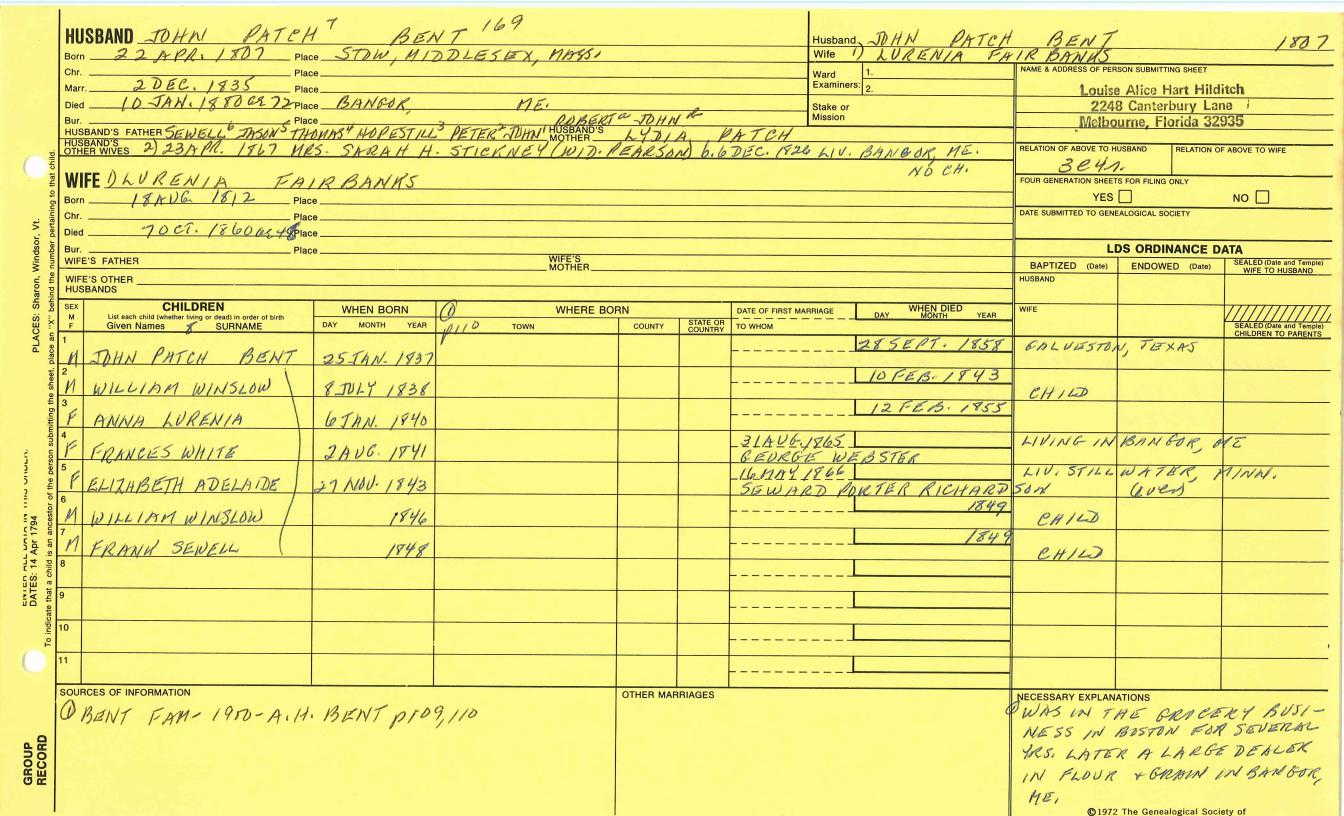 HUSBAND JOHN PATCH 7 BENT 169
Born 22 APR. 1807 Place STOW, MIDDLESEX, MASS.
Chr. Place
Marr. 2 DEC. 1835 Place
Died 10 JAN. 1880 ae 72 Place BANGOR, ME.
Bur. Place
HUSBAND'S FATHER SEWELL 6 JASON 5 THOMAS 4 HOPESTILL 3 PETER 2 JOHN 1 ROBERT a JOHN HUSBAND'S MOTHER LYDIA PATCH
HUSBAND'S OTHER WIVES 2) 23 APR. 1867 MRS. SARAH H. STICKNEY (WID. PEARSON) b. 6 DEC. 1826 LIV. BANGOR, ME.
NO CH.
Husband JOHN PATCH BENT 1807
Wife 1) LURENIA FAIRBANKS
Ward Examiners: 1.
2.
Stake or Mission
NAME & ADDRESS OF PERSON SUBMITTING SHEET
Louise Alice Hart Hilditch
2248 Canterbury Lane
Melbourne, Florida 32935
RELATION OF ABOVE TO HUSBAND RELATION OF ABOVE TO WIFE
3C4r.
FOUR GENERATION SHEETS FOR FILING ONLY
YES NO
DATE SUBMITTED TO GENEALOGICAL SOCIETY
WIFE 1) LURENIA FAIRBANKS
Born 18 AUG. 1812 Place
Chr. Place
Died 7 OCT. 1860 ae 48 Place
Bur. Place
WIFE'S FATHER WIFE'S MOTHER
WIFE'S OTHER HUSBANDS
LDS ORDINANCE DATA
BAPTIZED (Date) ENDOWED (Date) SEALED (Date and Temple) WIFE TO HUSBAND
HUSBAND
WIFE
SEALED (Date and Temple) CHILDREN TO PARENTS
SEX M F
CHILDREN
List each child (whether living or dead) in order of birth
Given Names 8 SURNAME
WHEN BORN
DAY MONTH YEAR
① p110
WHERE BORN
TOWN COUNTY STATE OR COUNTRY
DATE OF FIRST MARRIAGE
TO WHOM
WHEN DIED
DAY MONTH YEAR
1 M JOHN PATCH BENT 25 JAN. 1837 28 SEPT. 1858 GALVESTON, TEXAS
2 M WILLIAM WINSLOW 8 JULY 1838 10 FEB. 1843 CHILD
3 F ANNA LURENIA 6 JAN. 1840 12 FEB. 1855
4 F FRANCES WHITE 2 AUG. 1841 31 AUG. 1865 GEORGE WEBSTER LIVING IN BANGOR, ME
5 F ELIZABETH ADELAIDE 27 NOV. 1843 16 MAY 1866 SEWARD PORTER RICHARDSON LIV. STILLWATER, MINN.
6 M WILLIAM WINSLOW 1846 1849 CHILD
7 M FRANK SEWELL 1848 1849 CHILD
8
9
10
11
SOURCES OF INFORMATION
① BENT FAM- 1900- A.H. BENT p109,110
OTHER MARRIAGES
NECESSARY EXPLANATIONS
① WAS IN THE GROCERY BUSI-
NESS IN BOSTON FOR SEVERAL
YRS. LATER A LARGE DEALER
IN FLOUR & GRAIN IN BANGOR,
ME.
©1972 The Genealogical Society of
PLACES: Sharon, Windsor, Vt.
DATES: 14 Apr 1794
ENTER ALL DATA IN THIS ORDER:
To indicate that a child is an ancestor of the person submitting the sheet, place an "X" behind the number pertaining to that child.
GROUP RECORD